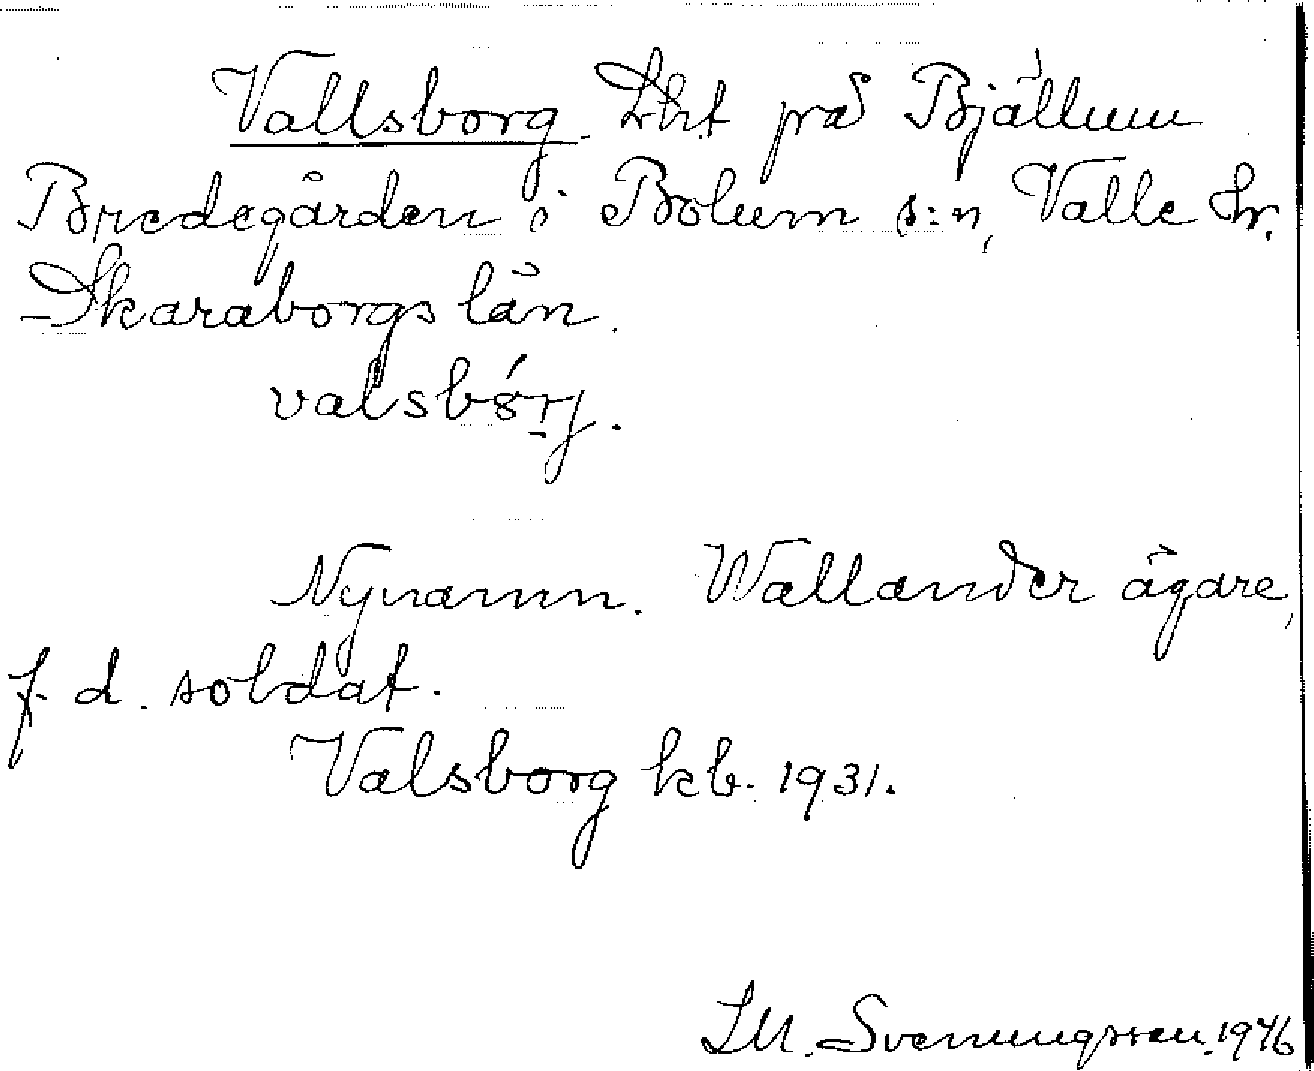 Vallsborg. Lht på Bjällum
Bredegården i Bolum s:n, Valle hr.
Skaraborgs län.
valsbórj.
Nynamn. Wallander ägare,
f. d. soldat.
Valsborg kb. 1931.
Svenungsson. 1946